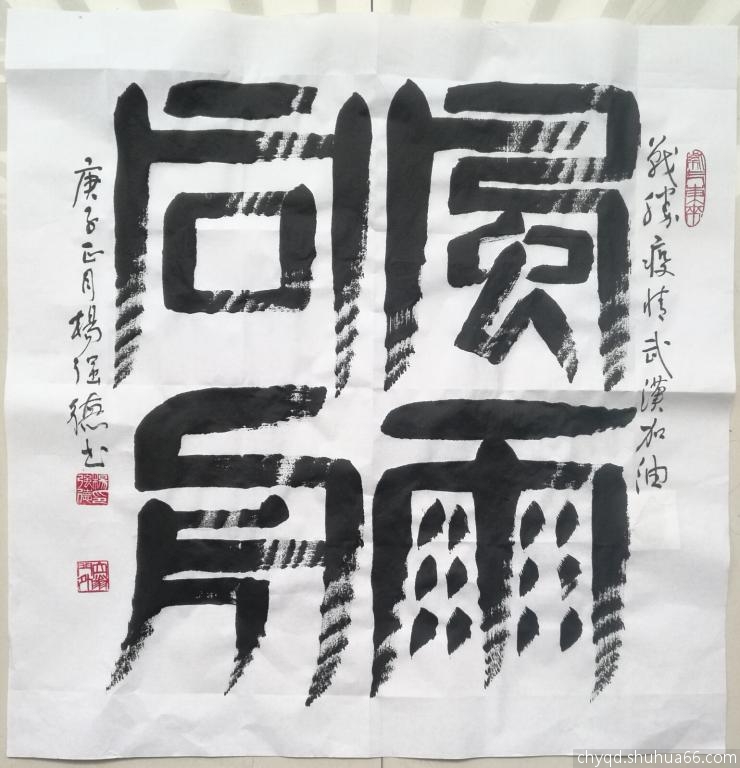 战胜疫情武漢加油
風雨
同舟
庚子正月楊强德书
chyqd.shuhua66.com